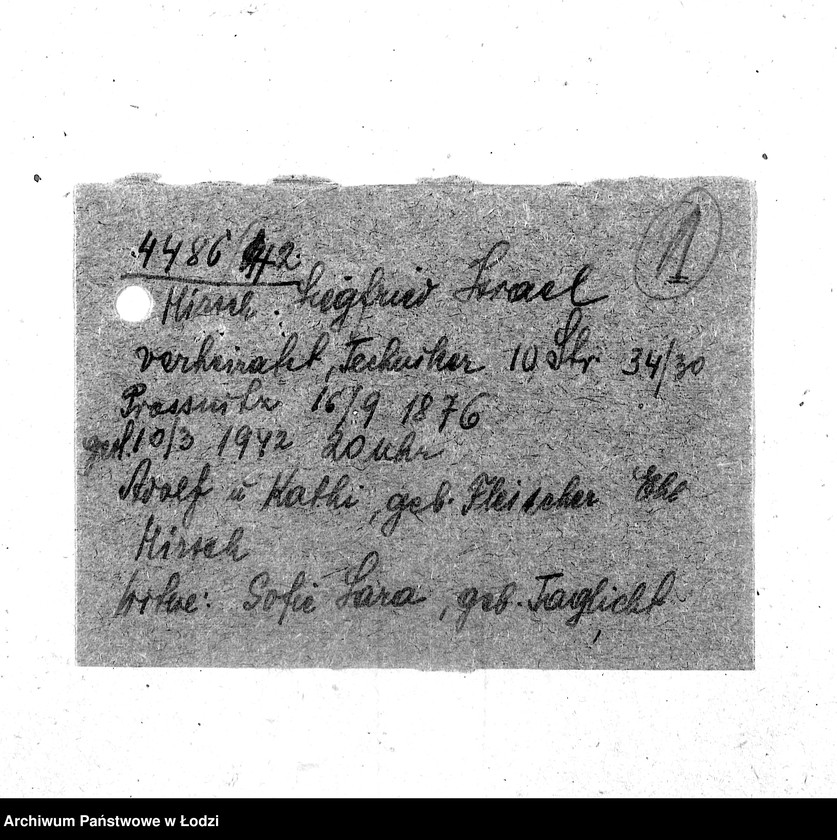 4486/42
1
Hirsch Siegfried Israel
verheiratet, Techniker 10 Str 34/30
Prossnitz 16/9 1876
gest. 10/3 1942 20 Uhr
Adolf u Kathi, geb. Fleischer Ehe
Hirsch
Witwe: Sofie Sara, geb. Taglicht
Archiwum Państwowe w Łodzi